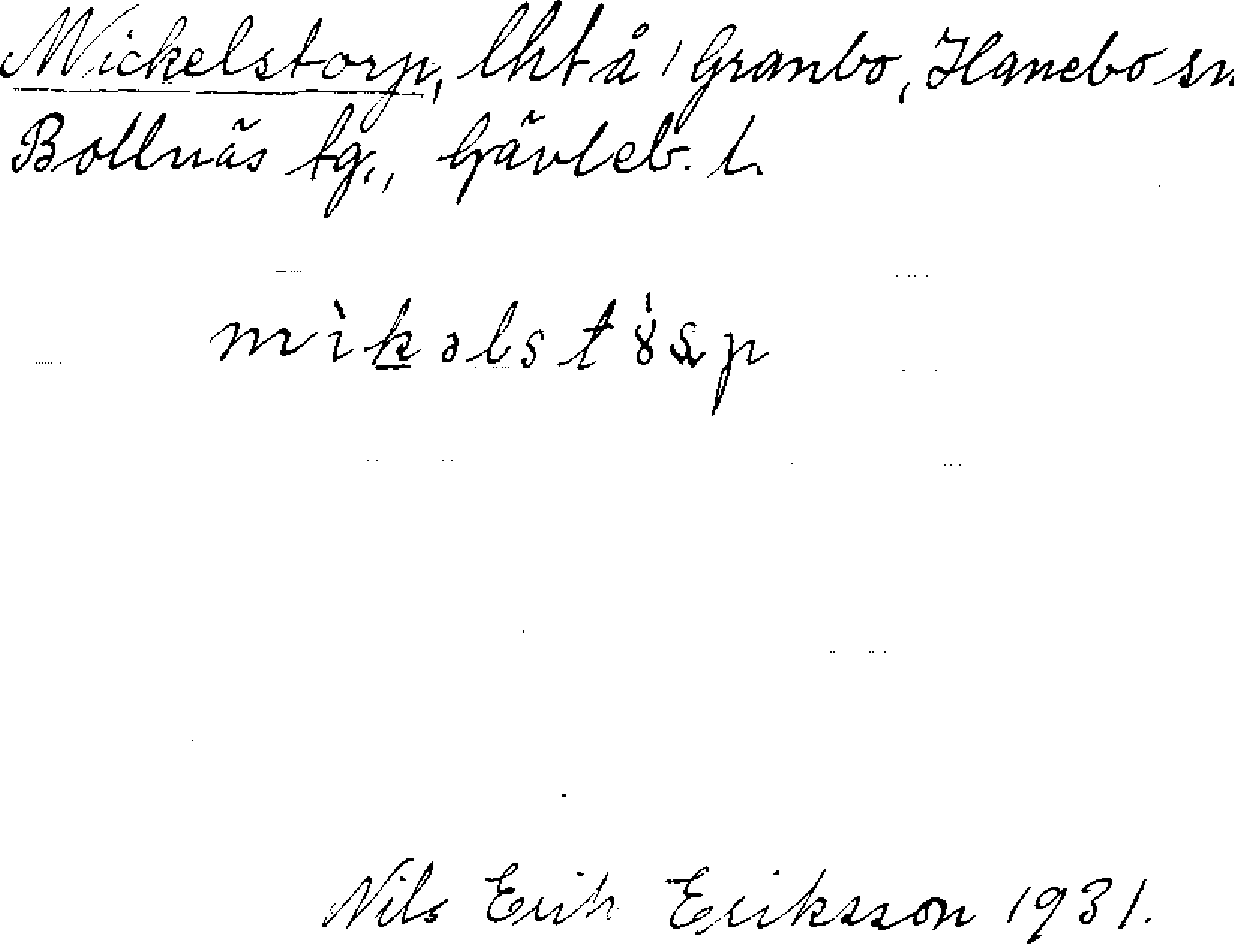 Mickelstorp, lht å 1 Granbo, Hanebo sn
Bollnäs tg., Gävleb. l.
Nils Erik Eriksson 1931.